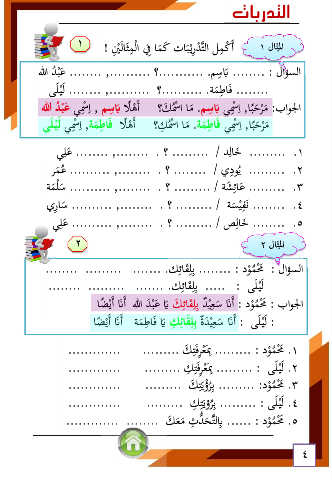 التدريبات
المثال ١ أَكْمِلِ التَّدْرِيْبَاتِ كَمَا فِي الْمِثَالَيْنِ ! ١
السؤال : ......... بَاسِم. ............؟ ..........., ......... عَبْدُ الله
......... فَاطِمَة. ............؟ ..........., ......... لَيْلَى
الجواب: مَرْحَبًا, إِسْمِي بَاسِم. مَا اسْمُكَ؟ أَهْلًا بَاسِم , إِسْمِي عَبْدُ الله
مَرْحَبًا, إِسْمِي فَاطِمَة. مَا اسْمُكِ؟ أَهْلًا فَاطِمَة, إِسْمِي لَيْلَى
١. ......... خَالِد / ......... ؟ . ........., ......... عَلِي
٢. ......... يُودِي / ......... ؟ . ........., ......... عُمَر
٣. ......... عَائِشَة / ......... ؟ . ........., ......... سَلْمَة
٤. ......... نَفِيْسَة / ......... ؟ . ........., ......... سَارِي
٥. ......... خَالِص / ......... ؟ . ........., ......... عَلِي
المثال ٢ ٢
السؤال : مَحْمُوْد : ......... بِلِقَائِك. ......... ......... .........
لَيْلَى : ...... بِلِقَائِك. ......... ......... .........
الجواب : مَحْمُوْد : أَنَا سَعِيْدٌ بِلِقَائِكَ يَا عَبْدَ الله أَنَا أَيْضًا
: لَيْلَى : أَنَا سَعِيْدَةٌ بِلِقَائِكِ يَا فَاطِمَة أَنَا أَيْضًا
١. مَحْمُوْد : ......... بِمَعْرِفَتِكَ ......... .............
٢. لَيْلَى : ......... بِمَعْرِفَتِكِ ......... .............
٣. مَحْمُوْد: ......... بِرُؤْيَتِكَ ......... .............
٤. لَيْلَى : ......... بِرُؤْيَتِكِ ......... .............
٥. مَحْمُوْد : ...... بِالتَّحَدُّثِ مَعَكَ ......... .............
٤